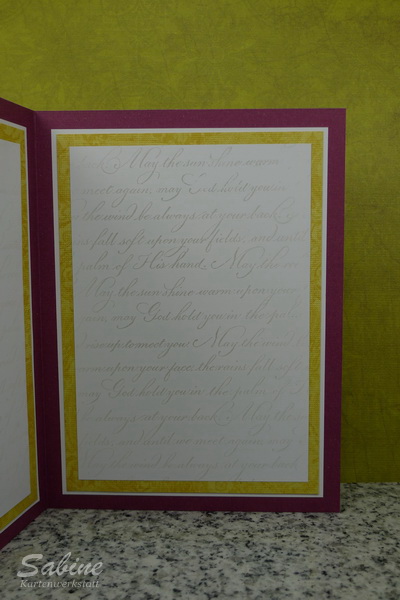 May the sun shine warm
meet again, may God hold you in
the wind be always at your back
fall soft upon your fields, and until
palm of His hand. May the
May the sun shine warm upon your
may God hold you in the palm
up to meet you. May the wind
upon your face the rains fall soft
may God hold you in the palm of
always at your back. May the
and until we meet again, may
May the wind be always at your back
Sabine
Kartenwerkstatt